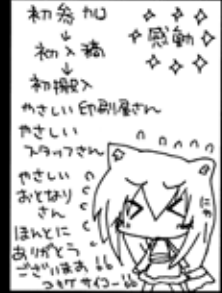 初参加
↓
初入稿
↓
初搬入
✧感動✧
やさしい印刷屋さん
やさしい
スタッフさん
やさしい
おとなり
さん
ほんとに
ありがとう
ございまあ
コミケサイコー